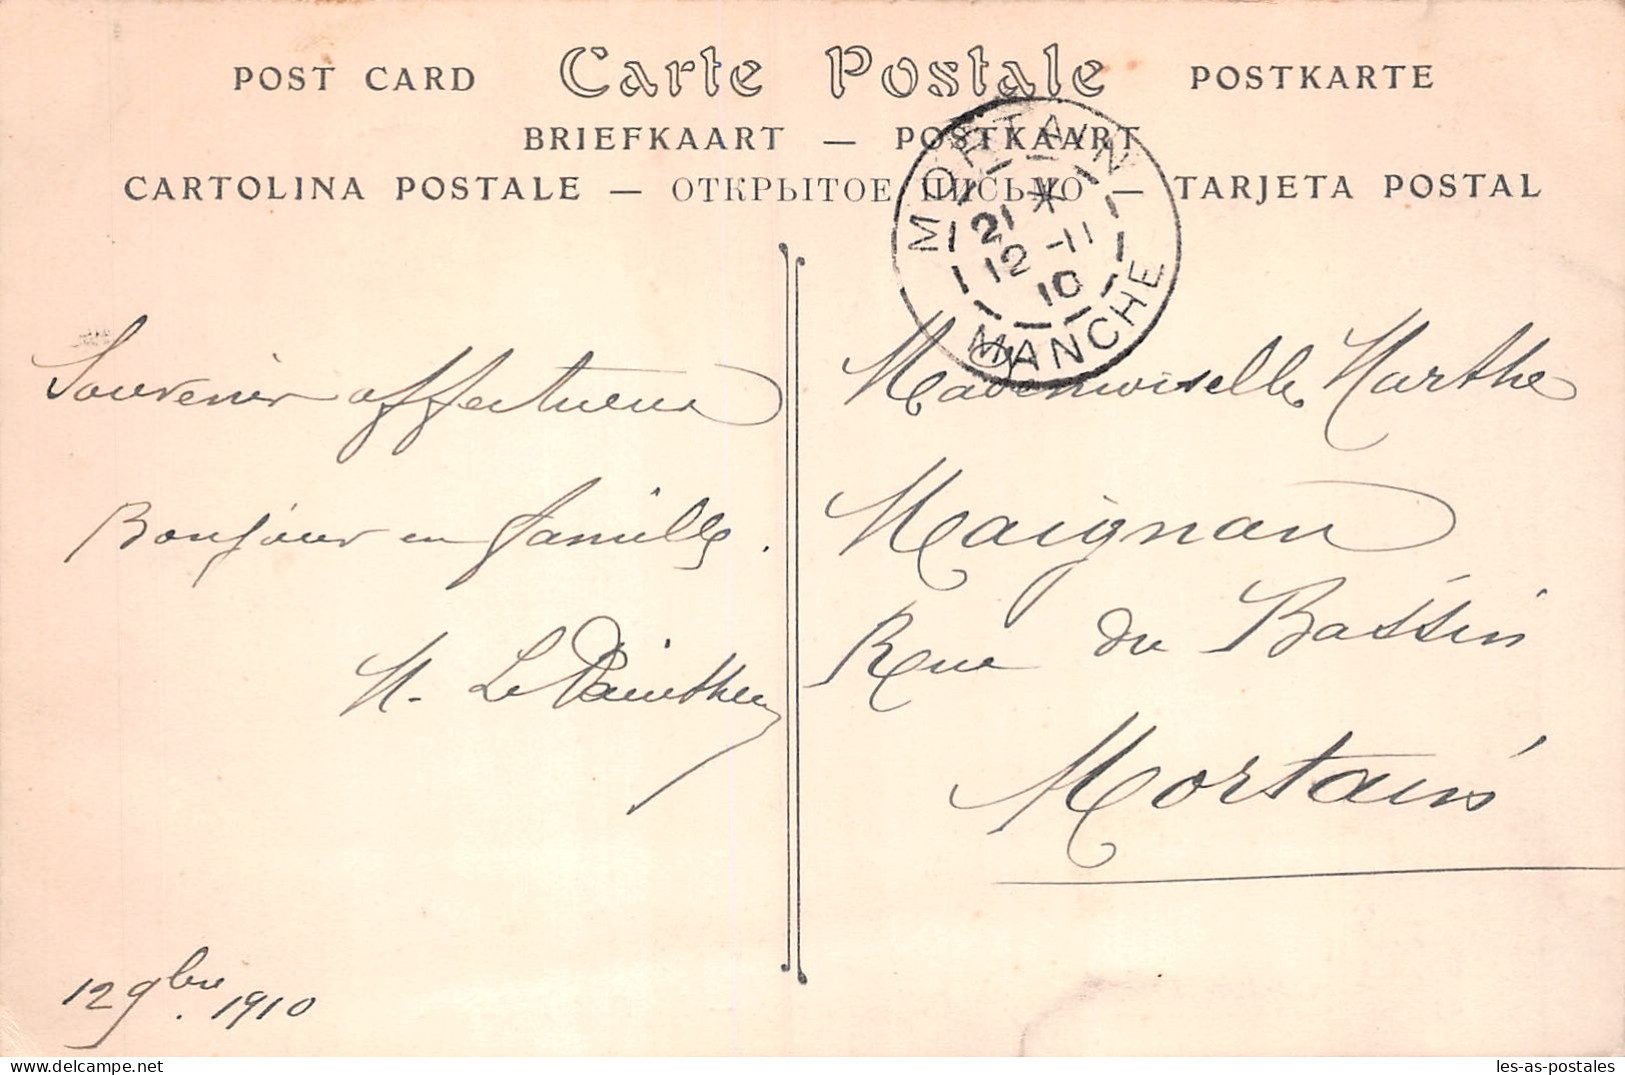 POST CARD Carte Postale POSTKARTE
BRIEFKAART — POSTKAART
CARTOLINA POSTALE — ОТКРЫТОЕ ПИСЬМО — TARJETA POSTAL
MORTAIN
21 *
12 -11
10
MANCHE
Souvenir affectueux
Bonjour en famille.
12 9bre. 1910
Mademoiselle Marthe
Maignan
Rue du Bassin
Mortain
les-as-postales